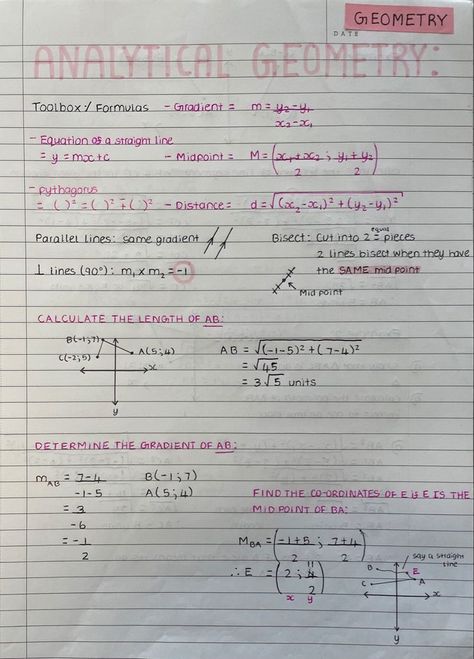 GEOMETRY
DATE
ANALYTICAL GEOMETRY:
Toolbox / Formulas - Gradient = m = y₂ - y₁
x₂ - x₁
- Equation of a straight line
= y = mx + c - Midpoint = M = (x₁ + x₂ ; y₁ + y₂)
2 2
- pythagorus
= ( )² = ( )² ∓ ( )² - Distance = d = √(x₂ - x₁)² + (y₂ - y₁)²
Parallel lines: same gradient
Bisect: Cut into 2 equal pieces
2 lines bisect when they have
the SAME mid point
⊥ lines (90°): m₁ x m₂ = -1
Mid point
CALCULATE THE LENGTH OF AB:
B(-1;7)
A(5;4)
C(-2;5)
x
y
AB = √(-1-5)² + (7-4)²
= √45
= 3√5 units
DETERMINE THE GRADIENT OF AB:
m_AB = 7-4 B(-1;7)
-1-5 A(5;4)
= 3
-6
= -1
2
FIND THE CO-ORDINATES OF E IF E IS THE
MID POINT OF BA:
M_BA = (-1+5 ; 7+4)
2 2
∴ E = (2 ; 11)
2
x y
say a straight
line
B
E
A
C
x
y